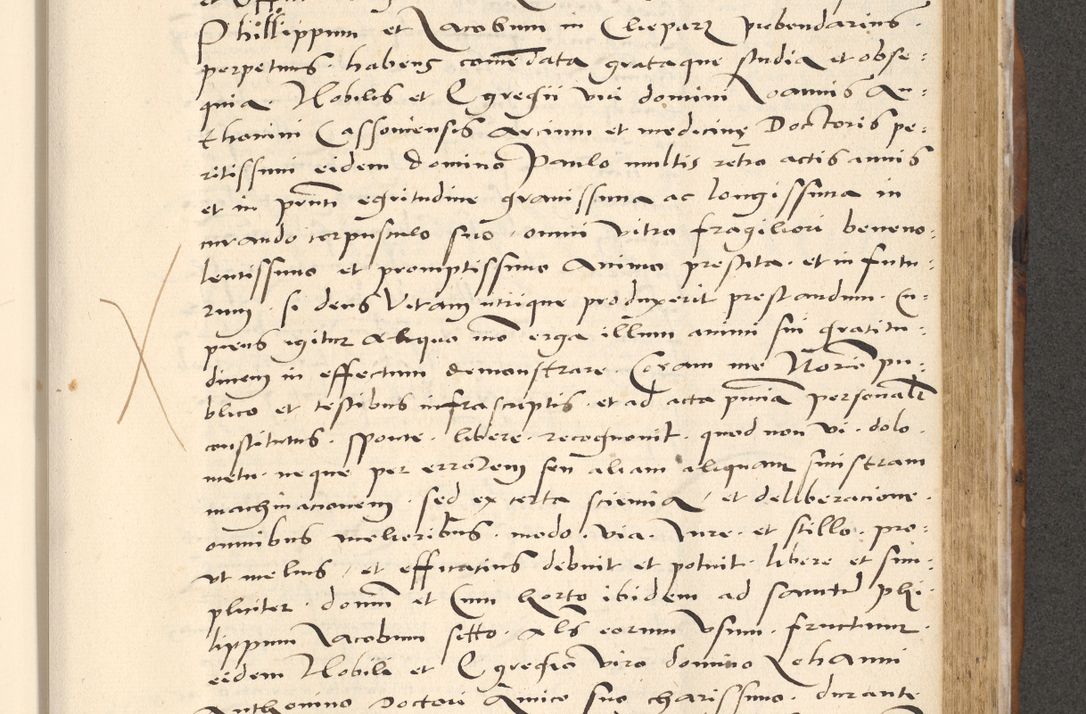 Phillippum et Jacobum in Clepars prebendarius ·
perpetuus · habens com̄endata grataque studia et obse-
quia · Nobilis et Egregii viri domini Joannis An-
thonini Cassoniensis Arcium et medicinę Doctoris pe-
ritissimi eidem domino Paulo multis retro actis annis
et in pn̄ti egritudine gravissima ac longissima in
curando corpusculo suo · omni vitro fragiliori benevo-
lentissimo et promptissimo Animo prestita · et in futu-
rum · si deus vitam utrique produxerit prestandum · Cu-
piens igitur Aliquo mō erga illum animi sui gratitu-
dinem in effectum demonstrare Coram me Notario pu-
blico et testibus infrascriptis · et ad acta pn̄tia personalr̄
constitutus · sponte · libere · recognovit · quod non vi · dolo ·
metu · neque per errorem seu aliam aliquam sinistram
machinationem · sed ex certa scientia / et deliberacione ·
omnibus melioribus · modo · via · Jure · et stillo · pro-
ut melius / et efficacius debuit et potuit · libere et sim-
pliciter · domum et Cum horto ibidem ad sanctum phi-
lippum Jacobum sitto · Als eorum usum · fructum ·
eidem Nobili et Egregio viro domino Johanni
Anthonino Doctori Amico suo charissimo · durante